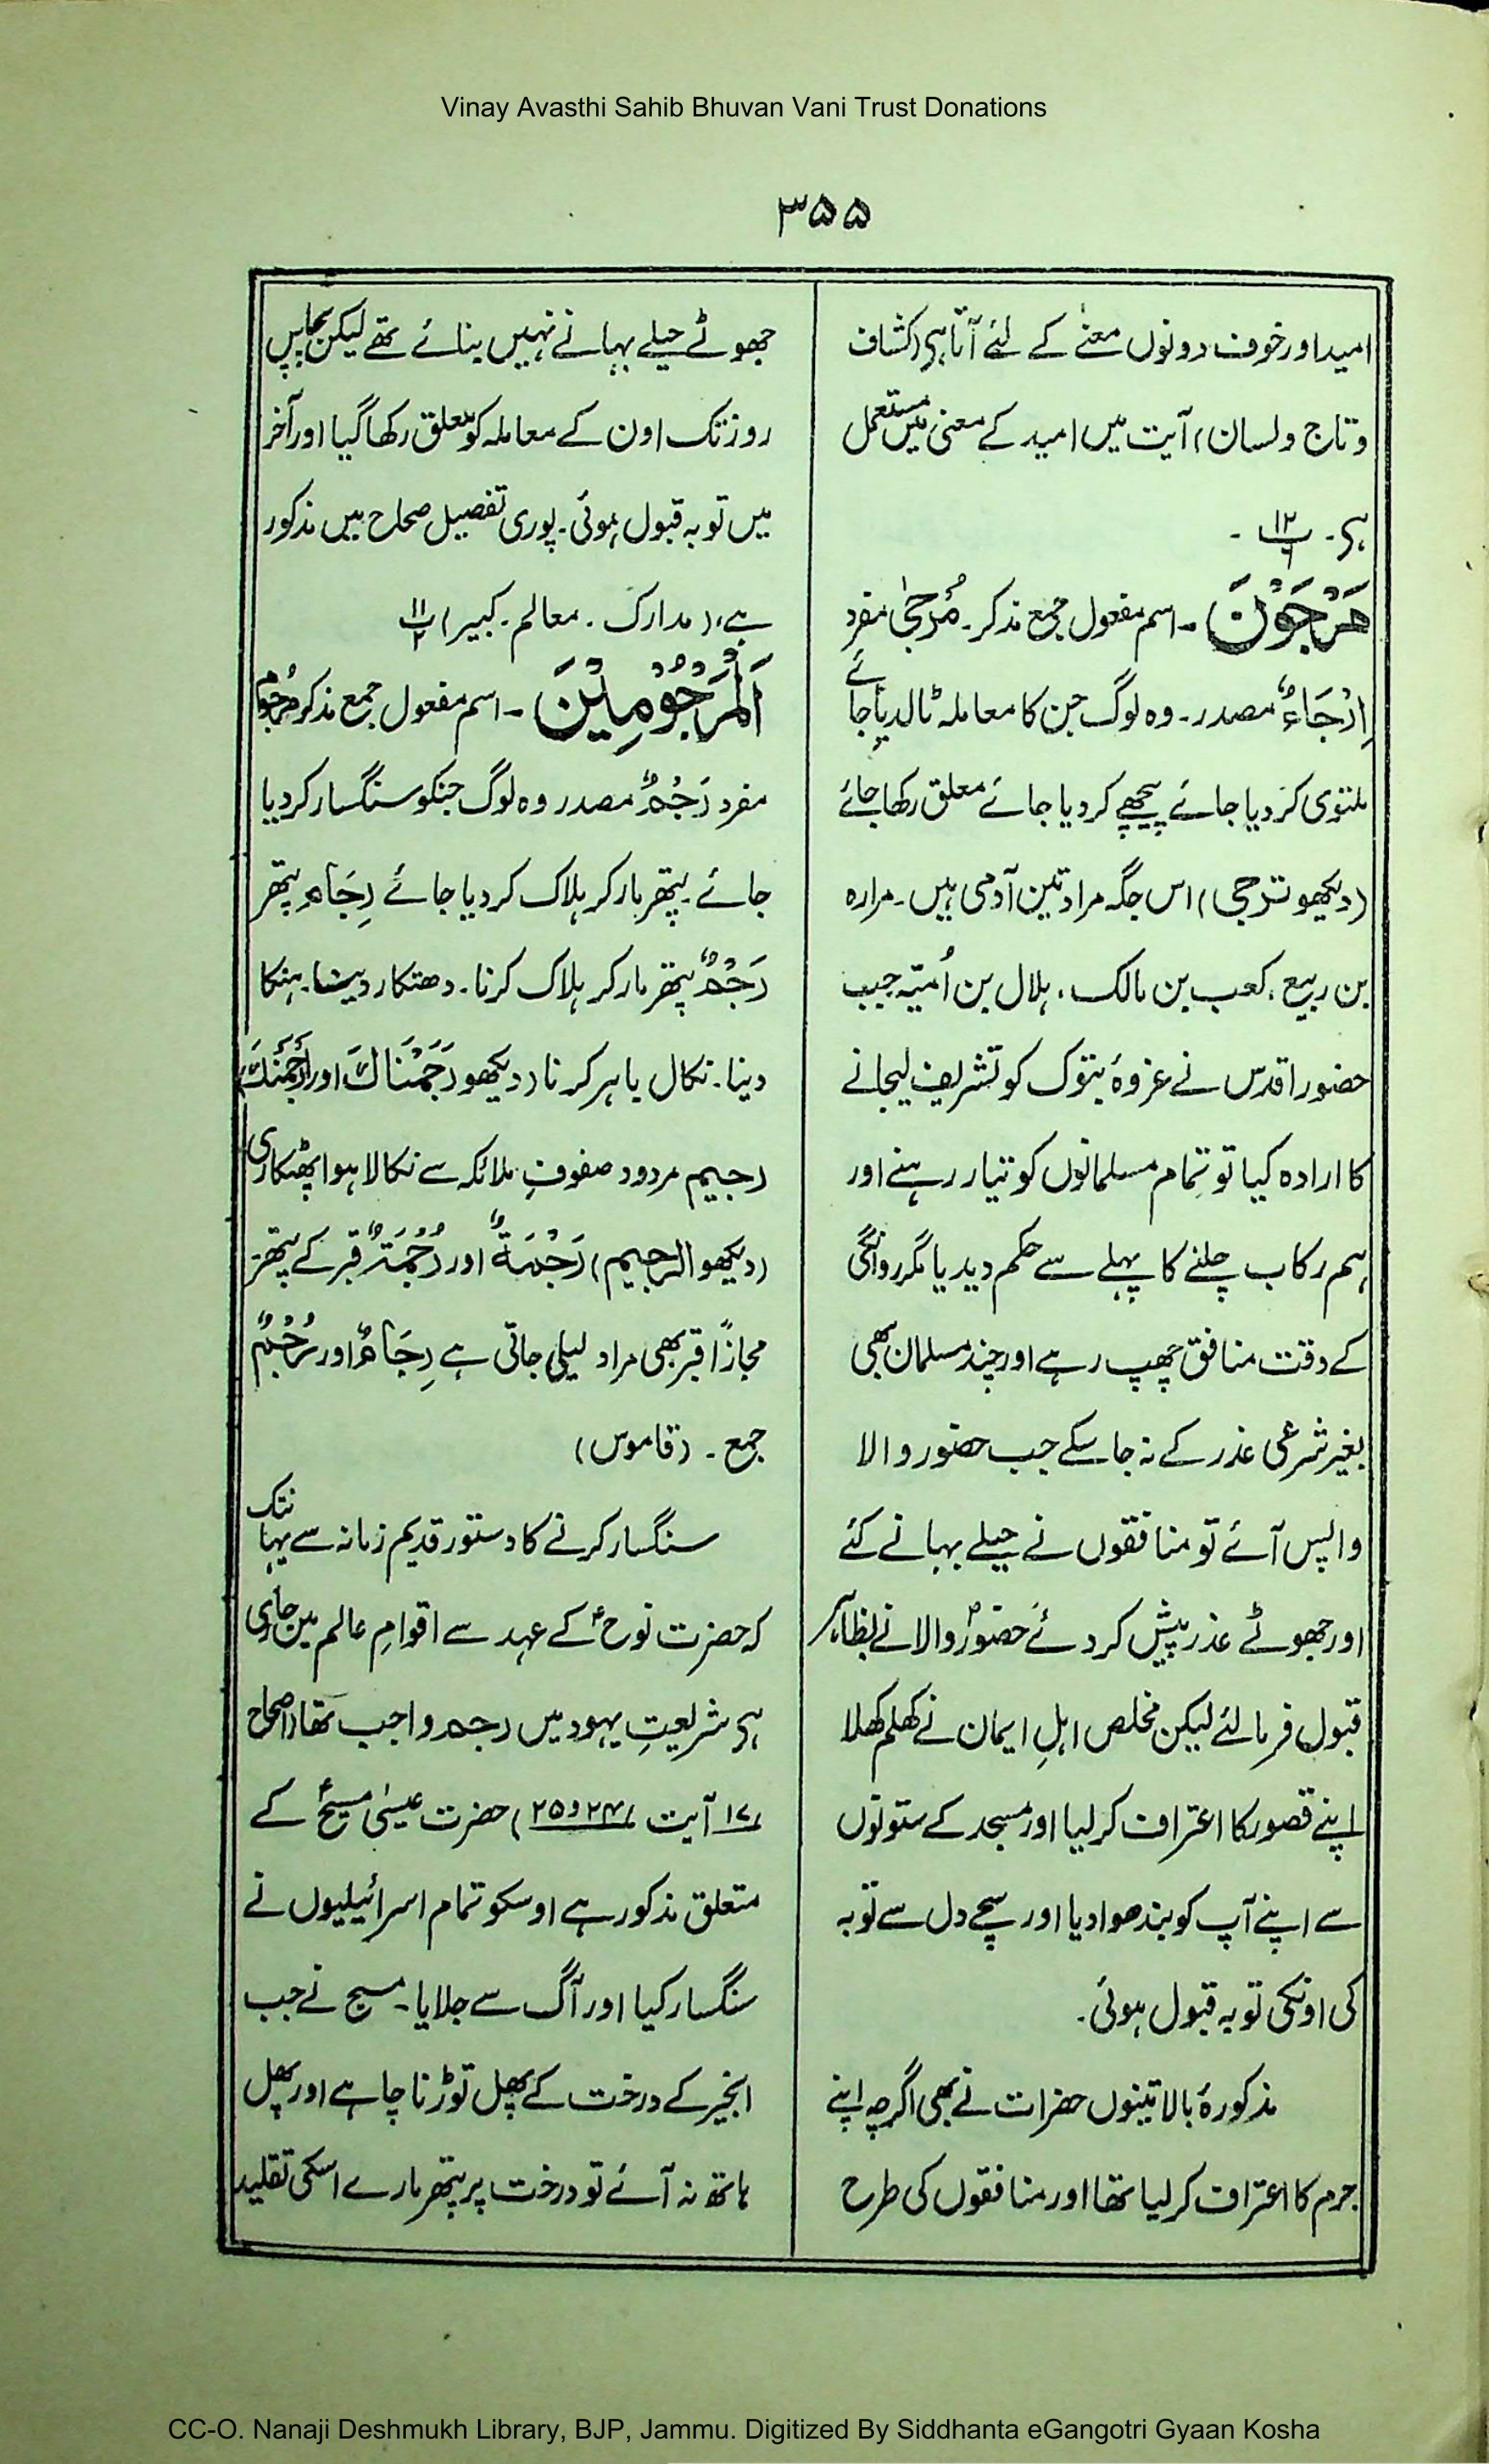 Vinay Avasthi Sahib Bhuvan Vani Trust Donations
۳۵۵
امید اور خوف دونوں معنے کے لئے آتا ہی (کشاف
و تاج و لسان) آیت میں امید کے معنی میں مستعمل
ہی۔ ۱۲/۶ ۔
مَرْجَوْنَ ۔ اسم مفعول جمع مذکر۔ مُرْجیٰ مفرد
اِرْجَاءٌ مصدر۔ وہ لوگ جن کا معاملہ ٹالدیا جائے
ملتوی کر دیا جائے پیچھے کر دیا جائے معلق رکھا جائے
(دیکھو ترجی) اس جگہ مراد تین آدمی ہیں۔ مرارہ
بن ربیع، کعب بن مالک، ہلال بن اُمیّہ جب
حضور اقدس نے غزوۂ تبوک کو تشریف لیجانے
کا ارادہ کیا تو تمام مسلمانوں کو تیار رہنے اور
ہم رکاب چلنے کا پہلے سے حکم دیدیا مگر روانگی
کے وقت منافق چھپ رہے اور چند مسلمان بھی
بغیر شرعی عذر کے نہ جا سکے جب حضور والا
واپس آئے تو منافقوں نے حیلے بہانے کئے
اور جھوٹے عذر پیش کر دئے حضورؐ والا نے بظاہر
قبول فرما لئے لیکن مخلص اہلِ ایمان نے کھلم کھلا
اپنے قصور کا اعتراف کر لیا اور مسجد کے ستونوں
سے اپنے آپ کو بندھوا دیا اور سچے دل سے توبہ
کی اونکی توبہ قبول ہوئی۔
مذکورۂ بالا تینوں حضرات نے بھی اگرچہ اپنے
جرم کا اعتراف کر لیا تھا اور منافقوں کی طرح
جھوٹے حیلے بہانے نہیں بنائے تھے لیکن پچاس
روز تک اون کے معاملہ کو معلق رکھا گیا اور آخر
میں توبہ قبول ہوئی۔ پوری تفصیل صحاح میں مذکور
ہے، (مدارک۔ معالم۔ کبیر) ۱۱/۲
اَلْمَرْجُوْمِیْنَ ۔ اسم مفعول جمع مذکر مَرْجُوْمٌ
مفرد رَجْمٌ مصدر وہ لوگ جنکو سنگسار کر دیا
جائے۔ پتھر مار کر ہلاک کر دیا جائے رِجَام پتھر
رَجْمٌ پتھر مار کر ہلاک کرنا۔ دھتکار دینا۔ ہنکا
دینا۔ نکال باہر کرنا (دیکھو رَجَمْنَاكَ اور اَرْجُمَنَّكَ)
رجیم مردود صفوفِ ملائکہ سے نکالا ہوا پھٹکاری
(دیکھو الرجیم) رَجْمَةٌ اور رُجْمَةٌ قبر کے پتھر۔
مجازًا قبر بھی مراد لیلی جاتی ہے رِجَامٌ اور رُجُمٌ
جمع۔ (قاموس)
سنگسار کرنے کا دستور قدیم زمانہ سے یہانتک
کہ حضرت نوحؑ کے عہد سے اقوامِ عالم میں جاری
ہی شریعتِ یہود میں رجم واجب تھا (اصحاح
۱۷/ آیت ۲۴/ و ۲۵) حضرت عیسیٰ مسیحؑ کے
متعلق مذکور ہے اوسکو تمام اسرائیلیوں نے
سنگسار کیا اور آگ سے جلایا۔ مسیح نے جب
انجیر کے درخت کے پھل توڑنا چاہے اور پھل
ہاتھ نہ آئے تو درخت پر پتھر مارے اسکی تقلید
CC-O. Nanaji Deshmukh Library, BJP, Jammu. Digitized By Siddhanta eGangotri Gyaan Kosha